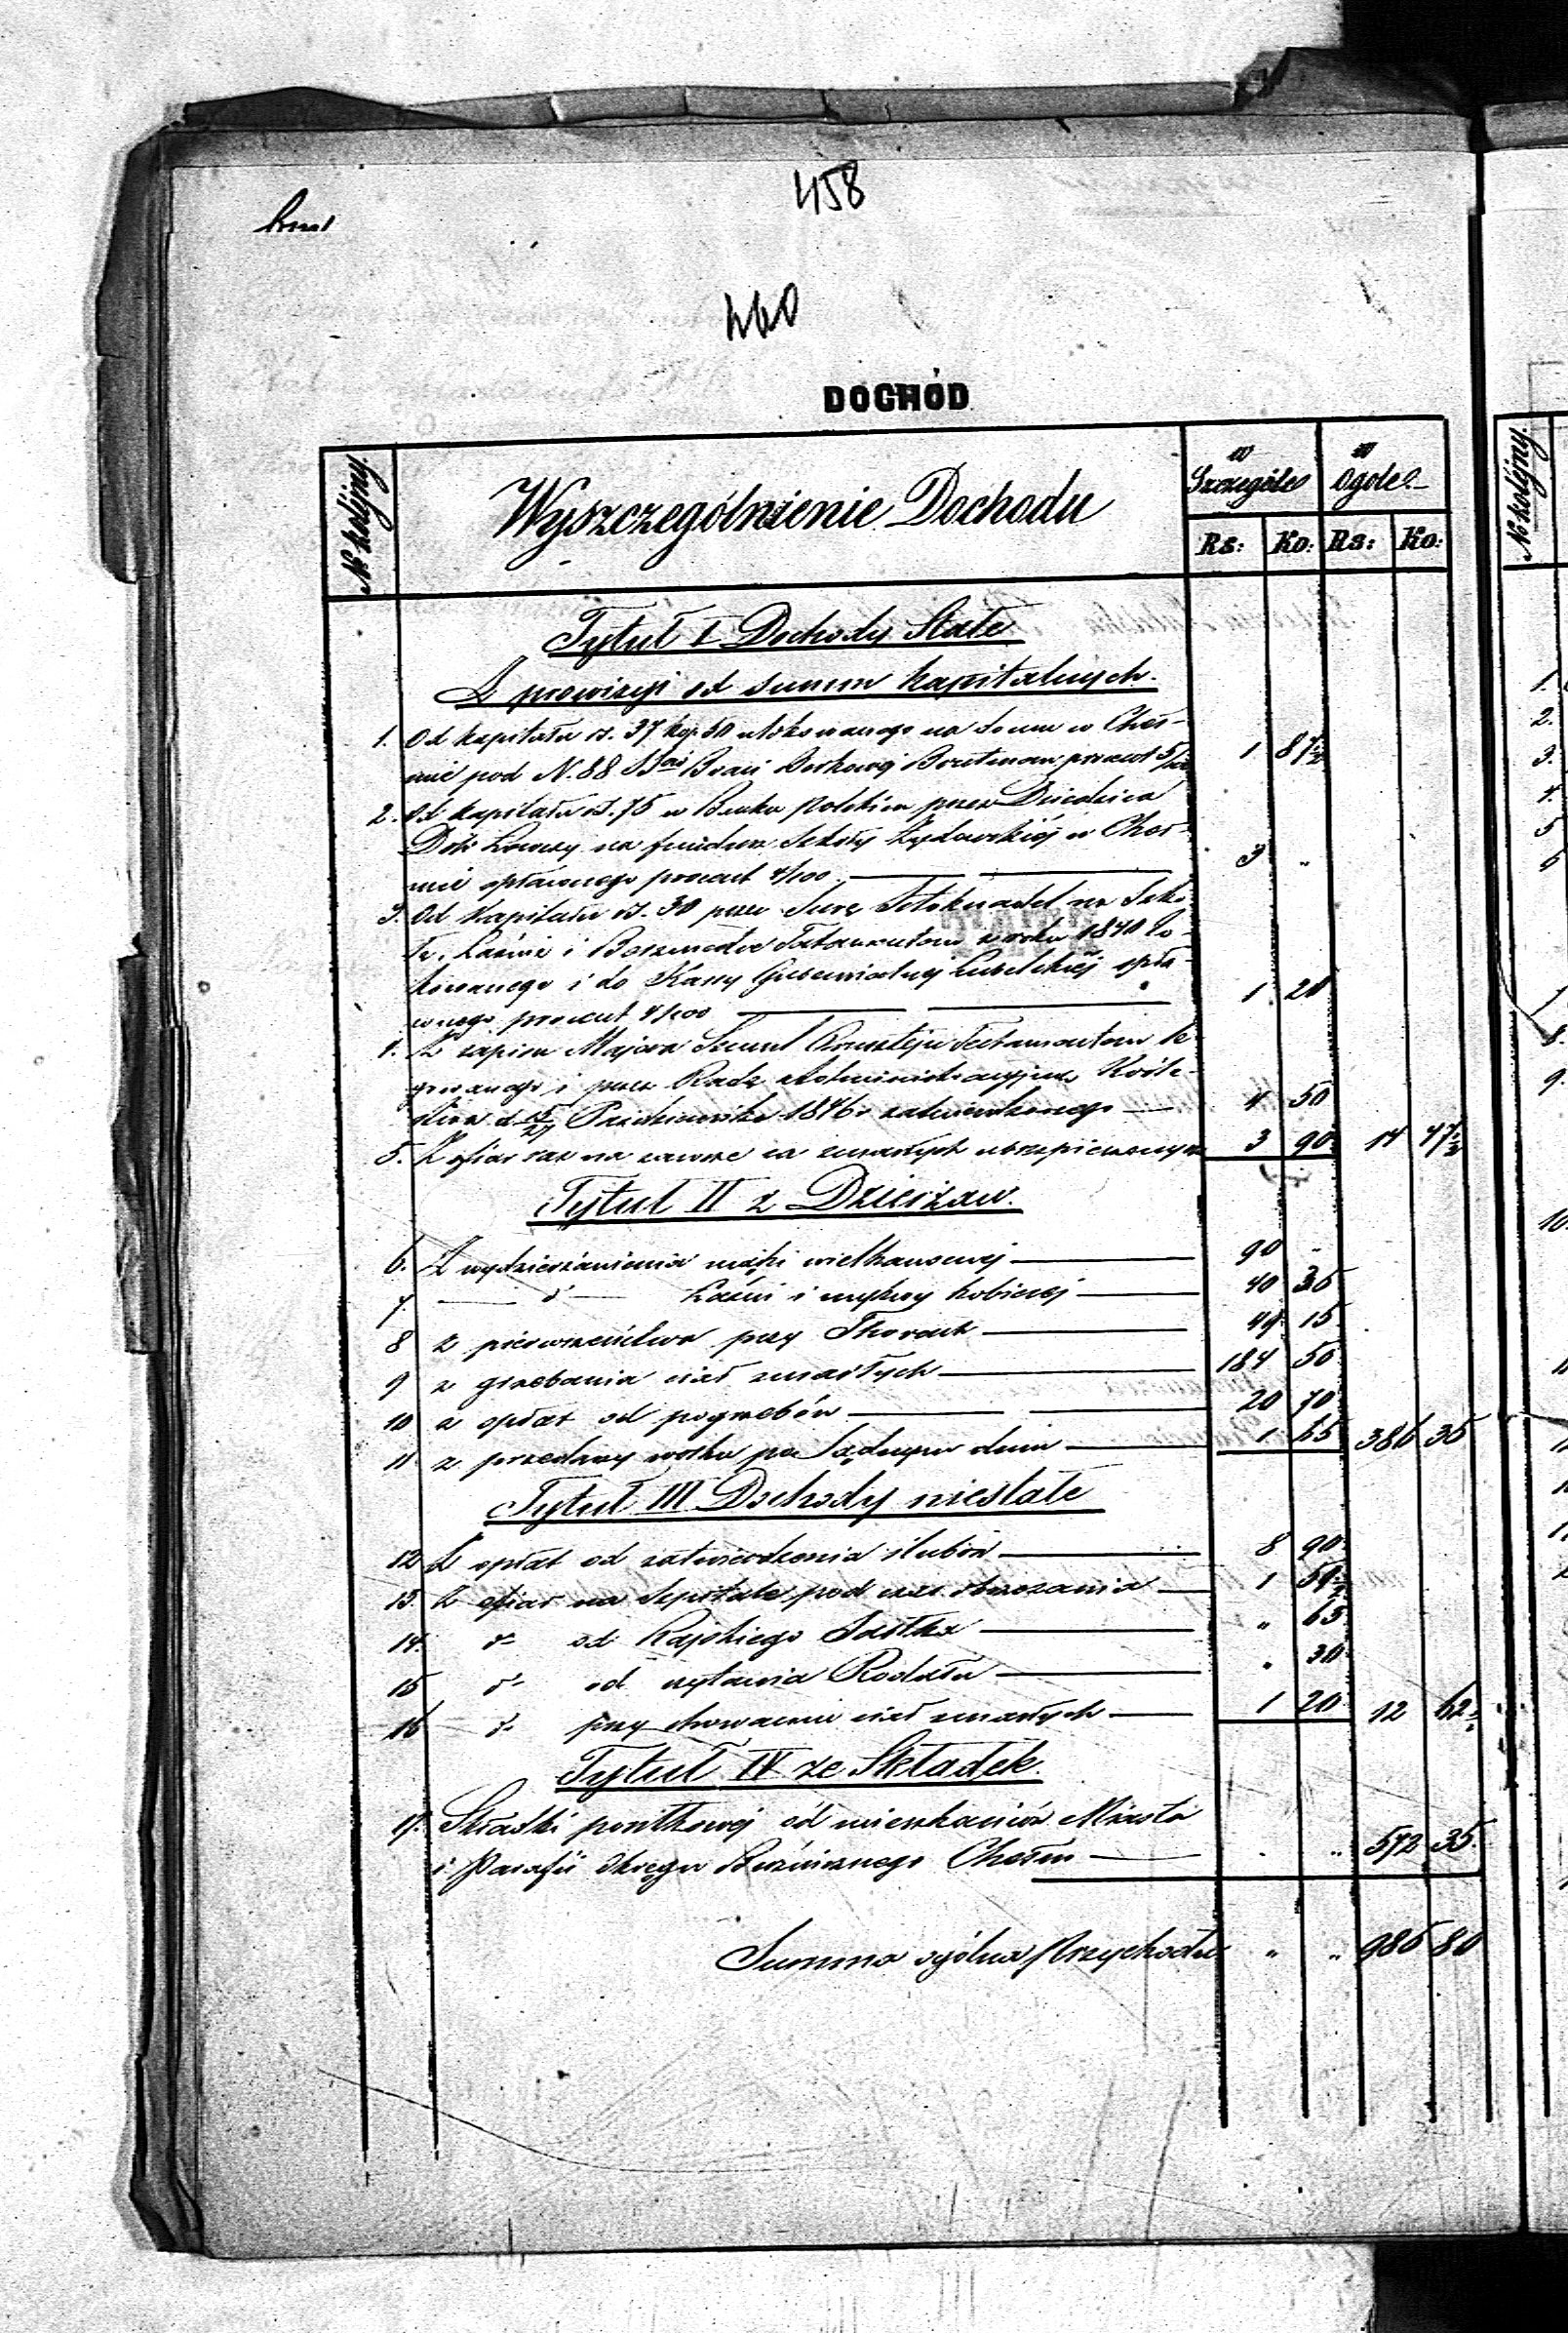 458
460
DOCHÓD
№ kolijny.
Wyszczególnienie Dochodu
w Szczególe
w Ogóle
Rs: Ko: Rs: Ko:
№ kolijny.
Tytuł I Dochody Stałe
Z prowizyi od summ kapitalnych.
1. Od kapitału rs. 37 kop. 50 ulokowanego na domu w Cheł-
mie pod N. 88 Braci procent 5/100 1 87½
2. Od kapitału rs. 75 w Banku Polskim przez Dziedzica
Dóbr na fundusz Szkoły Żydowskiéj w Cheł-
mie opłaconego procent 4/100 3 "
3. Od Kapitału rs. 30 przez na Szko-
łę, Łaźnie i Testamentem w roku 1840 lo-
kowanego i do Kassy Gubernialnej Lubelskiéj wpła-
conego procent 4/100 1 20
4. Z zapisu Majora Szmul Testamentem le-
gowanego i przez Radę Administracyjną Króle-
stwa d. 15/27 Października 1846 r. zatwierdzonego 4 50
5. Z ofiar raz na zawsze za zmarłych ubezpieczonych 3 90 14 47½
Tytuł II z Dzierżaw.
6. Z wydzierżawienia mąki wielkanocnej 90 "
7. d° Łaźni i mykwy kobiecej 40 35
8 z pierwszeństwa przy Thorach 49 15
9 z grzebania ciał zmarłych 184 50
10 z opłat od pogrzebów 20 70
11 z przedaży wosku po Sądnym dniu 1 65 386 35
Tytuł III Dochody niestałe
12 Z opłat od zatwierdzenia ślubów 8 90
13. Z ofiar na Szpitale pod czas obrzezania 1 57½
14. d° od Rajskiego Jabłka " 65
15 d° od czytania Rodału " 30
16 d° przy chowaniu ciał zmarłych 1 20 12 62½
Tytuł IV ze Składek.
17. Składki posiłkowej od mieszkańców Miasta
i Parafii Okręgu Bożnicznego Chełm " " 572 35.
Summa ogólna Przychodu " " 985 80